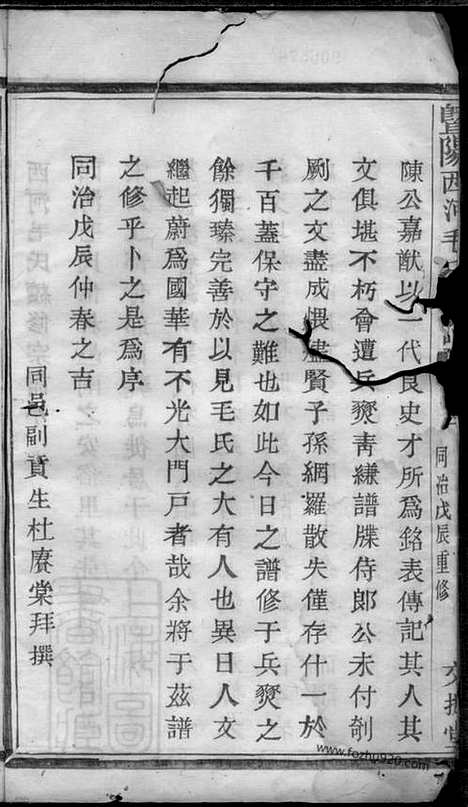 暨陽西河毛
同治戊辰重修
陳公嘉猷以一代良史才所爲銘表傳記其人其
文俱堪不朽會遭兵燹靑縑譜牒侍郎公未付剞
劂之文盡成煨燼賢子孫網羅散失僅存什一於
千百蓋保守之難也如此今日之譜修于兵燹之
餘獨臻完善於以見毛氏之大有人也異日人文
繼起蔚爲國華有不光大門戸者哉余將于茲譜
之修乎卜之是爲序
同治戊辰仲春之吉
同邑副貢生杜賡棠拜撰
www.fozhu920.com